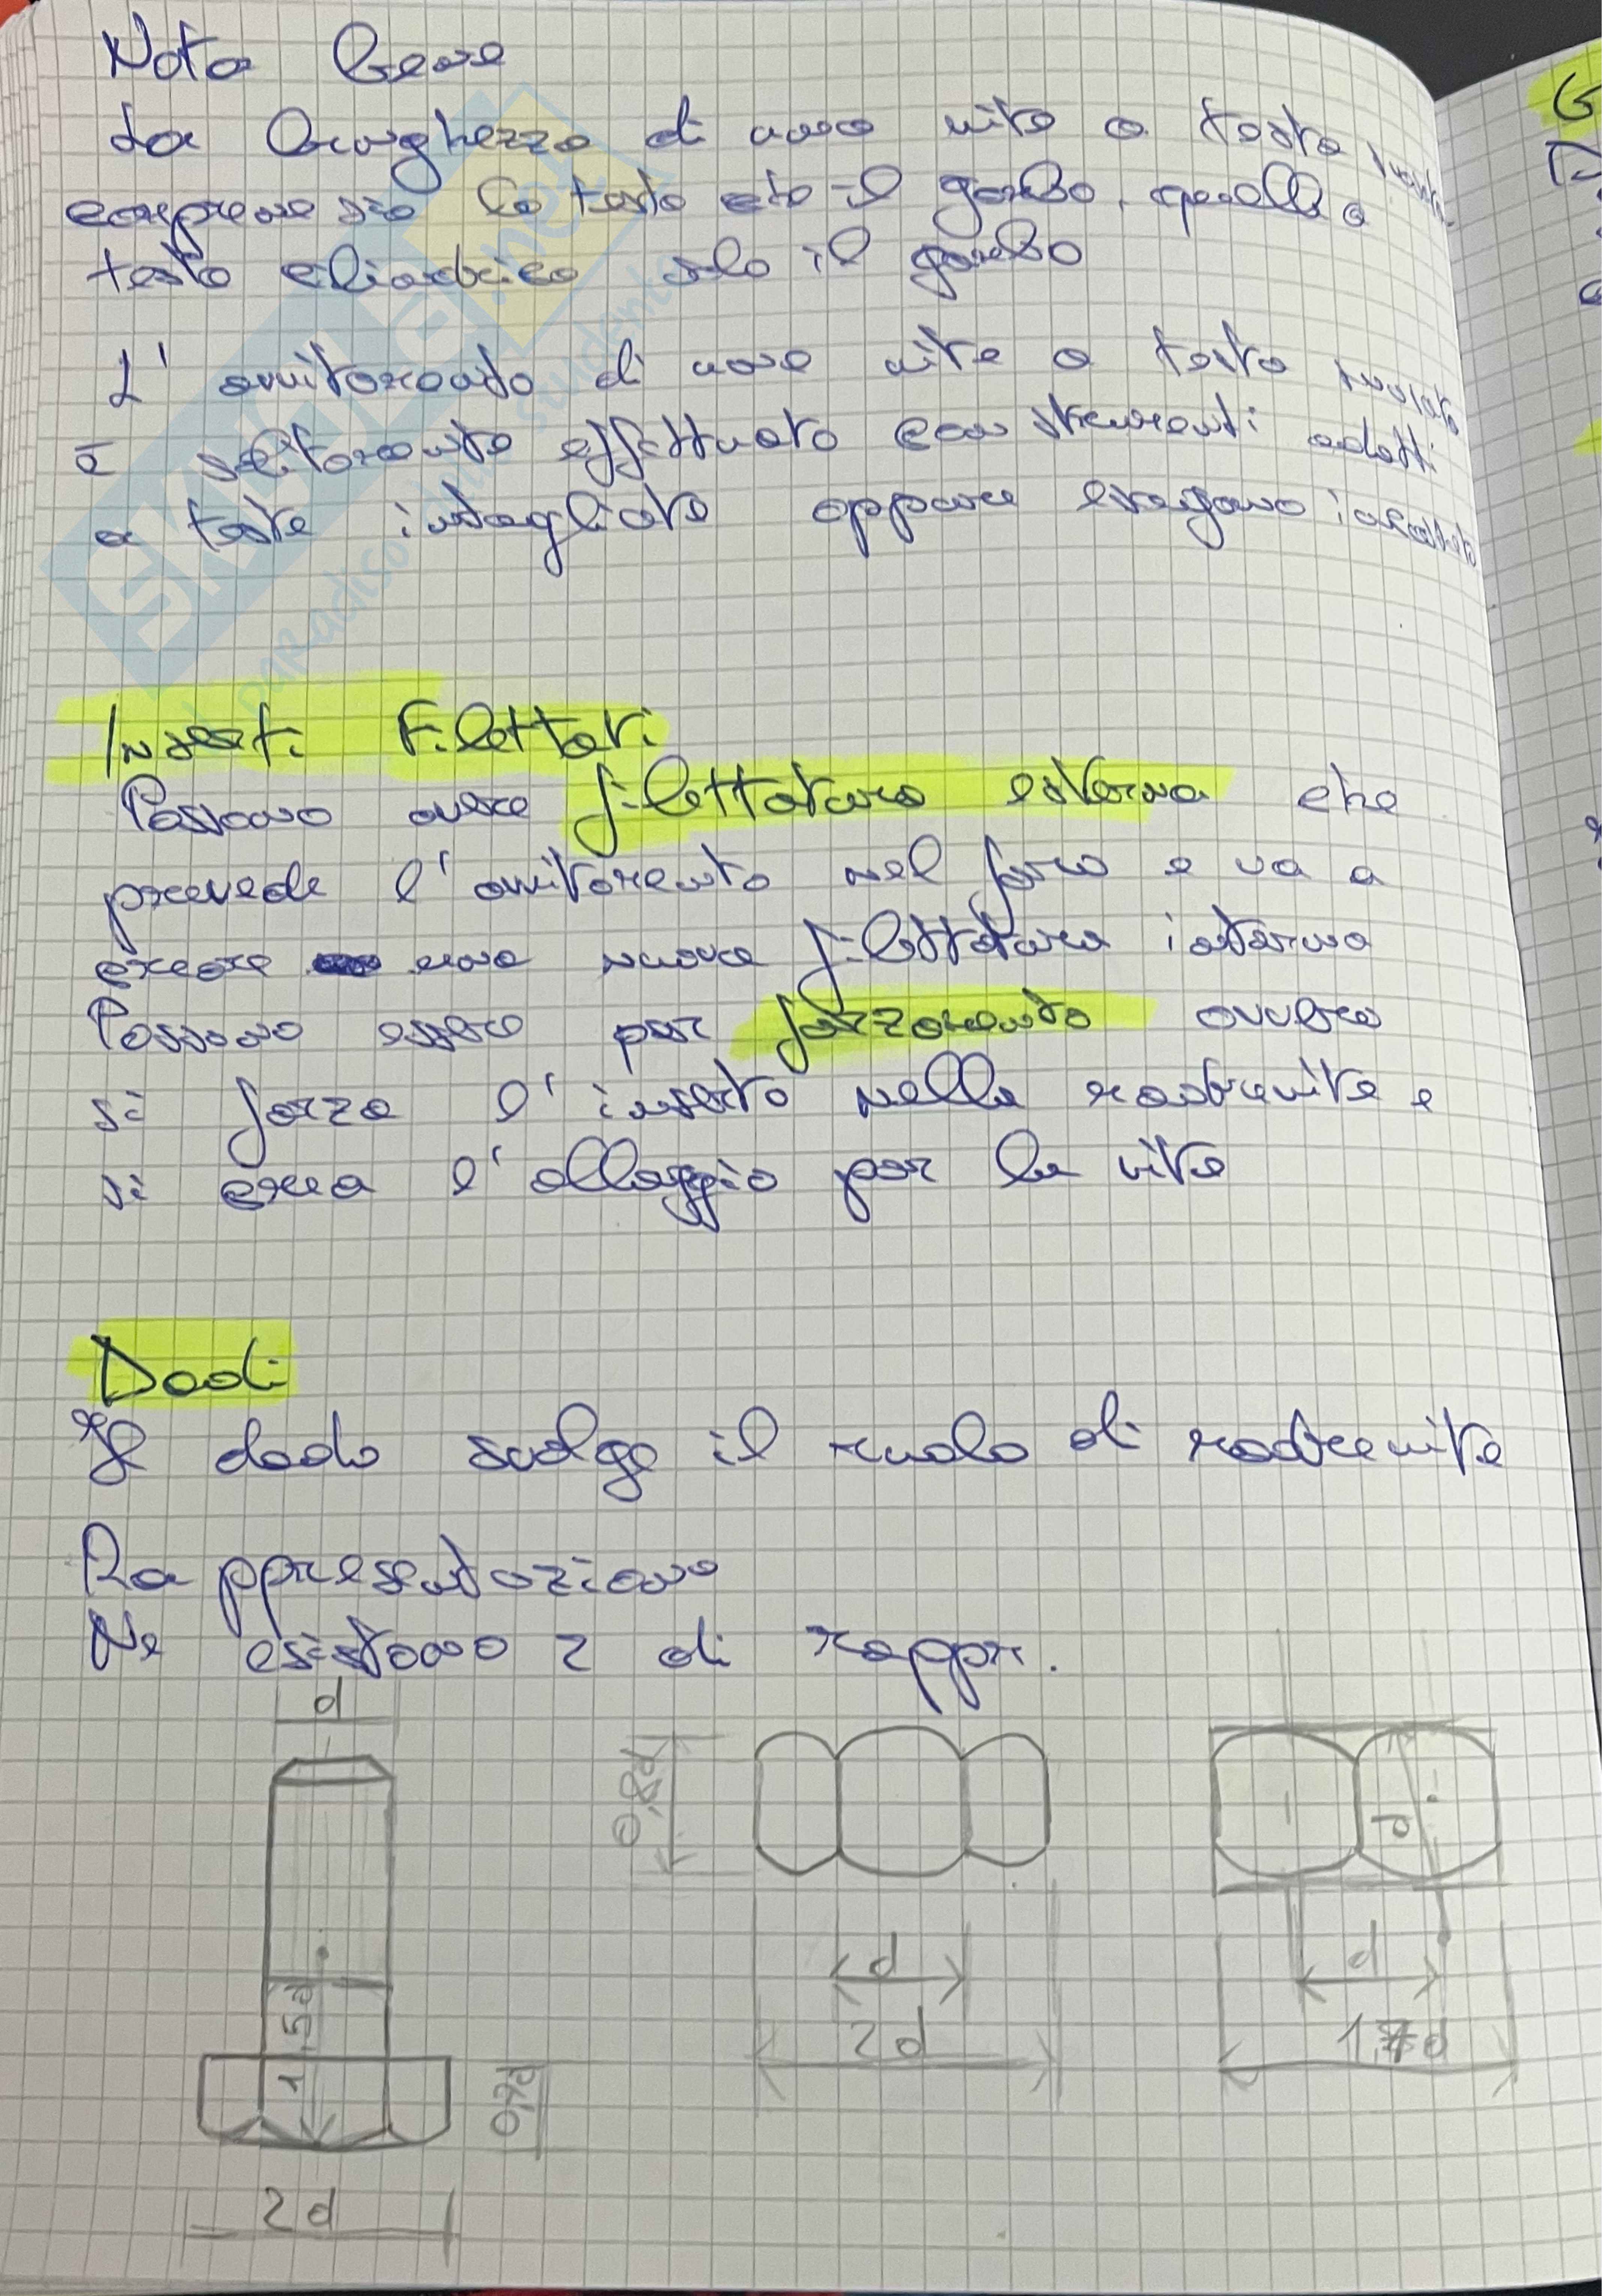 Nota bene
La lunghezza di una vite a testa svasata
comprende sia la testa che il gambo, quella a
testa cilindrica solo il gambo
L'avvitamento di una vite a testa svasata
è solitamente effettuato con strumenti adatti
a teste intagliate oppure esagono incassato
Inserti Filettati
Possono avere filettatura esterna che
prevede l'avvitamento nel foro e va a
creare una nuova filettatura interna
Possono essere per forzamento ovvero
si forza l'inserto nella madrevite e
si crea l'alloggio per la vite
Dadi
Il dado svolge il ruolo di madrevite
Rappresentazione
Ne esistono 2 di rappr.
d
0,8d
d
d
d
1,5d
2d
1,7d
0,7d
2d
SKUOLA.net
il paradiso dello studente